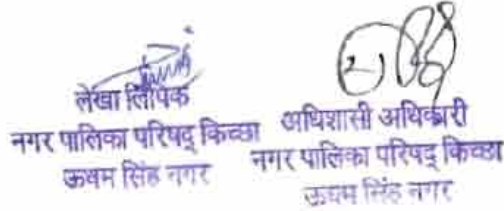 लेखा लिपिक
नगर पालिका परिषद् किच्छा
ऊधम सिंह नगर
अधिशासी अधिकारी
नगर पालिका परिषद् किच्छा
ऊधम सिंह नगर